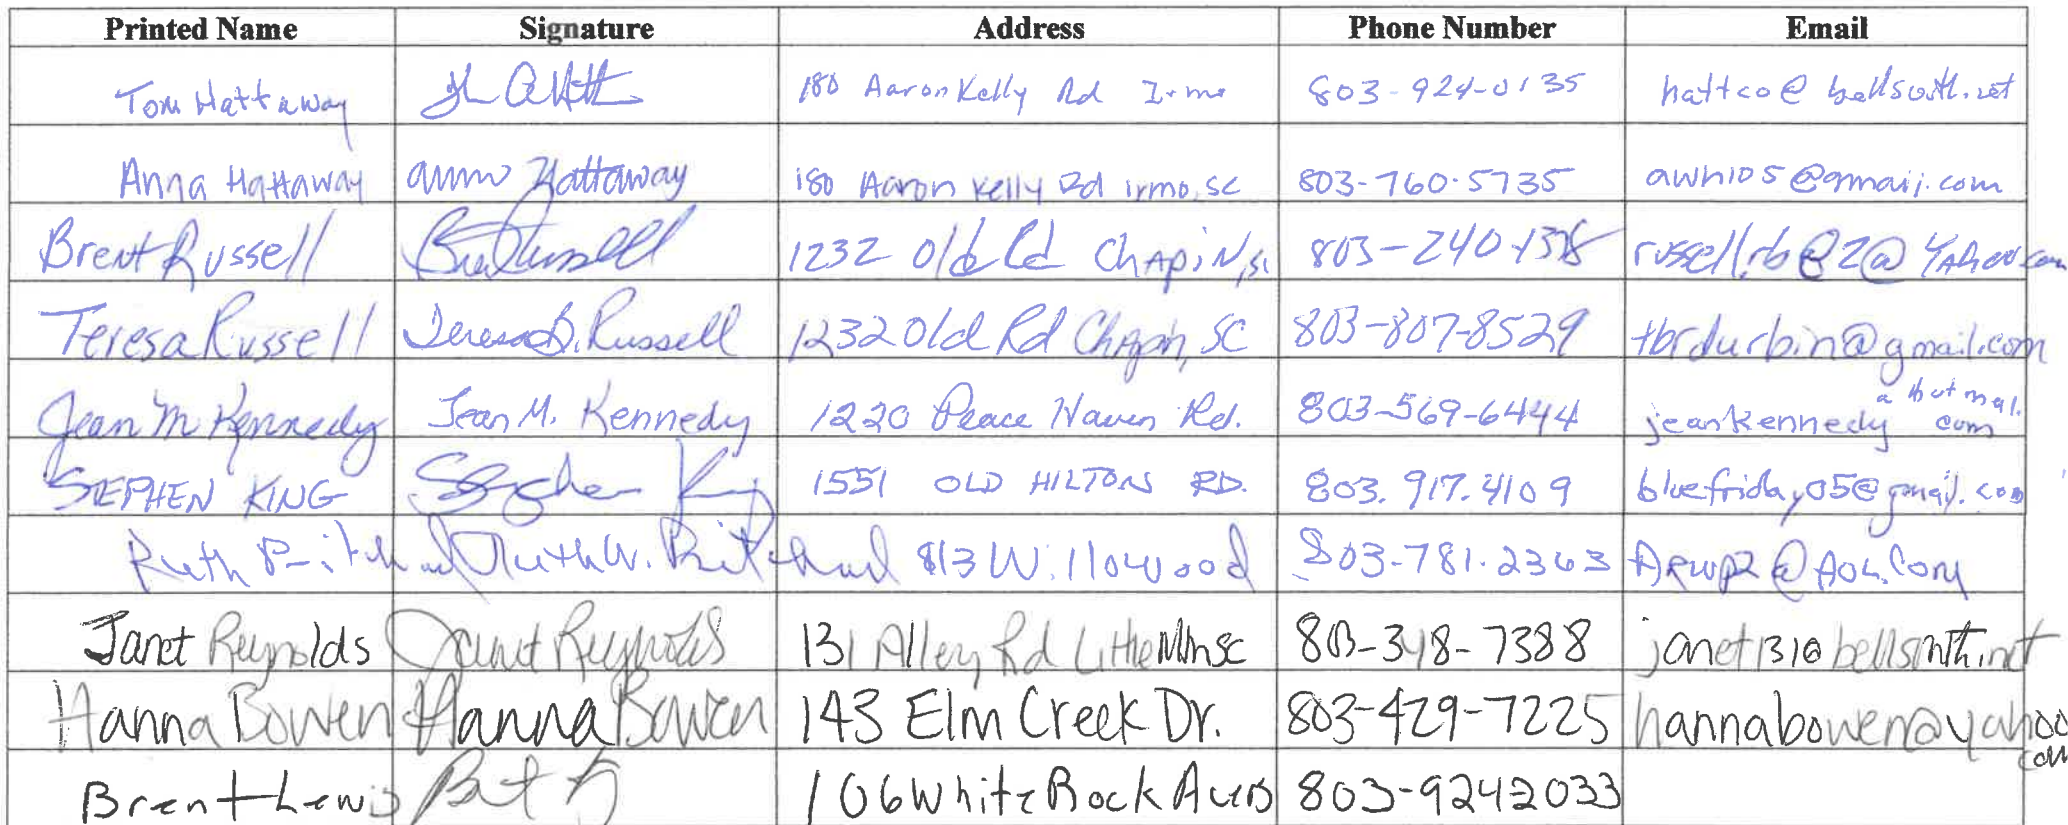 Printed Name Signature Address Phone Number Email
Tom Hattaway 180 Aaron Kelly Rd Irmo 803-924-0135 hattco@bellsouth.net
Anna Hattaway Anna Hattaway 180 Aaron Kelly Rd irmo, SC 803-760-5735 awh105@gmail.com
Brent Russell Brent Russell 1232 Old Rd Chapin, SC 803-240-1378 Yahoo.com
Teresa Russell Teresa B. Russell 1232 Old Rd Chapin, SC 803-807-8529 tbrdurbin@gmail.com
Jean M Kennedy Jean M. Kennedy 1220 Peace Haven Rd. 803-569-6444 jeankennedy a hotmail.com
STEPHEN KING Stephen King 1551 OLD HILTON RD. 803.917.4109 bluefriday05@gmail.com
Ruth Pritchard Ruth W. Pritchard 813 Willowood 803-781-2363 ARWP2@AOL.Com
Janet Reynolds Janet Reynolds 131 Alley Rd Little Mtn SC 803-318-7388 janet131@bellsouth.net
Hanna Bowen Hanna Bowen 143 Elm Creek Dr. 803-429-7225 hannabowen@yahoo.com
Brent Lewis 106 White Rock Acres 803-9242033